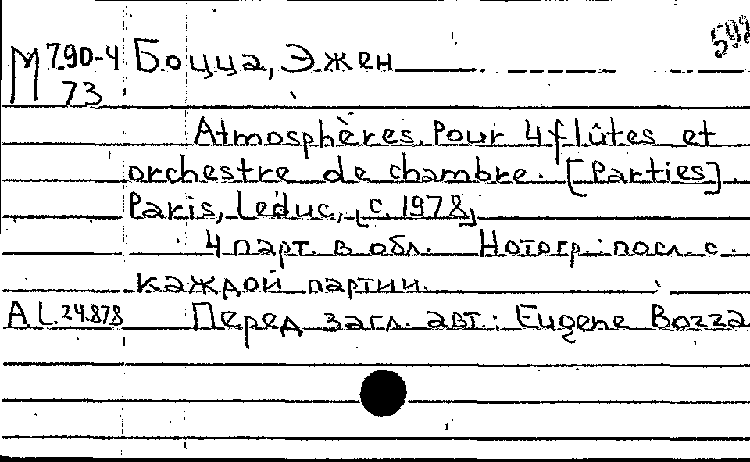 592
М 790-4 Боцца, Эжен
73
Atmosphères. Pour 4 flûtes et
orchestre de chambre. [Parties].
Paris, Leduc, [c. 1978]
4 парт. в обл. Нотогр.: посл. с.
каждой партии.
A L. 24.878 Перед загл. авт.: Eugene Bozza